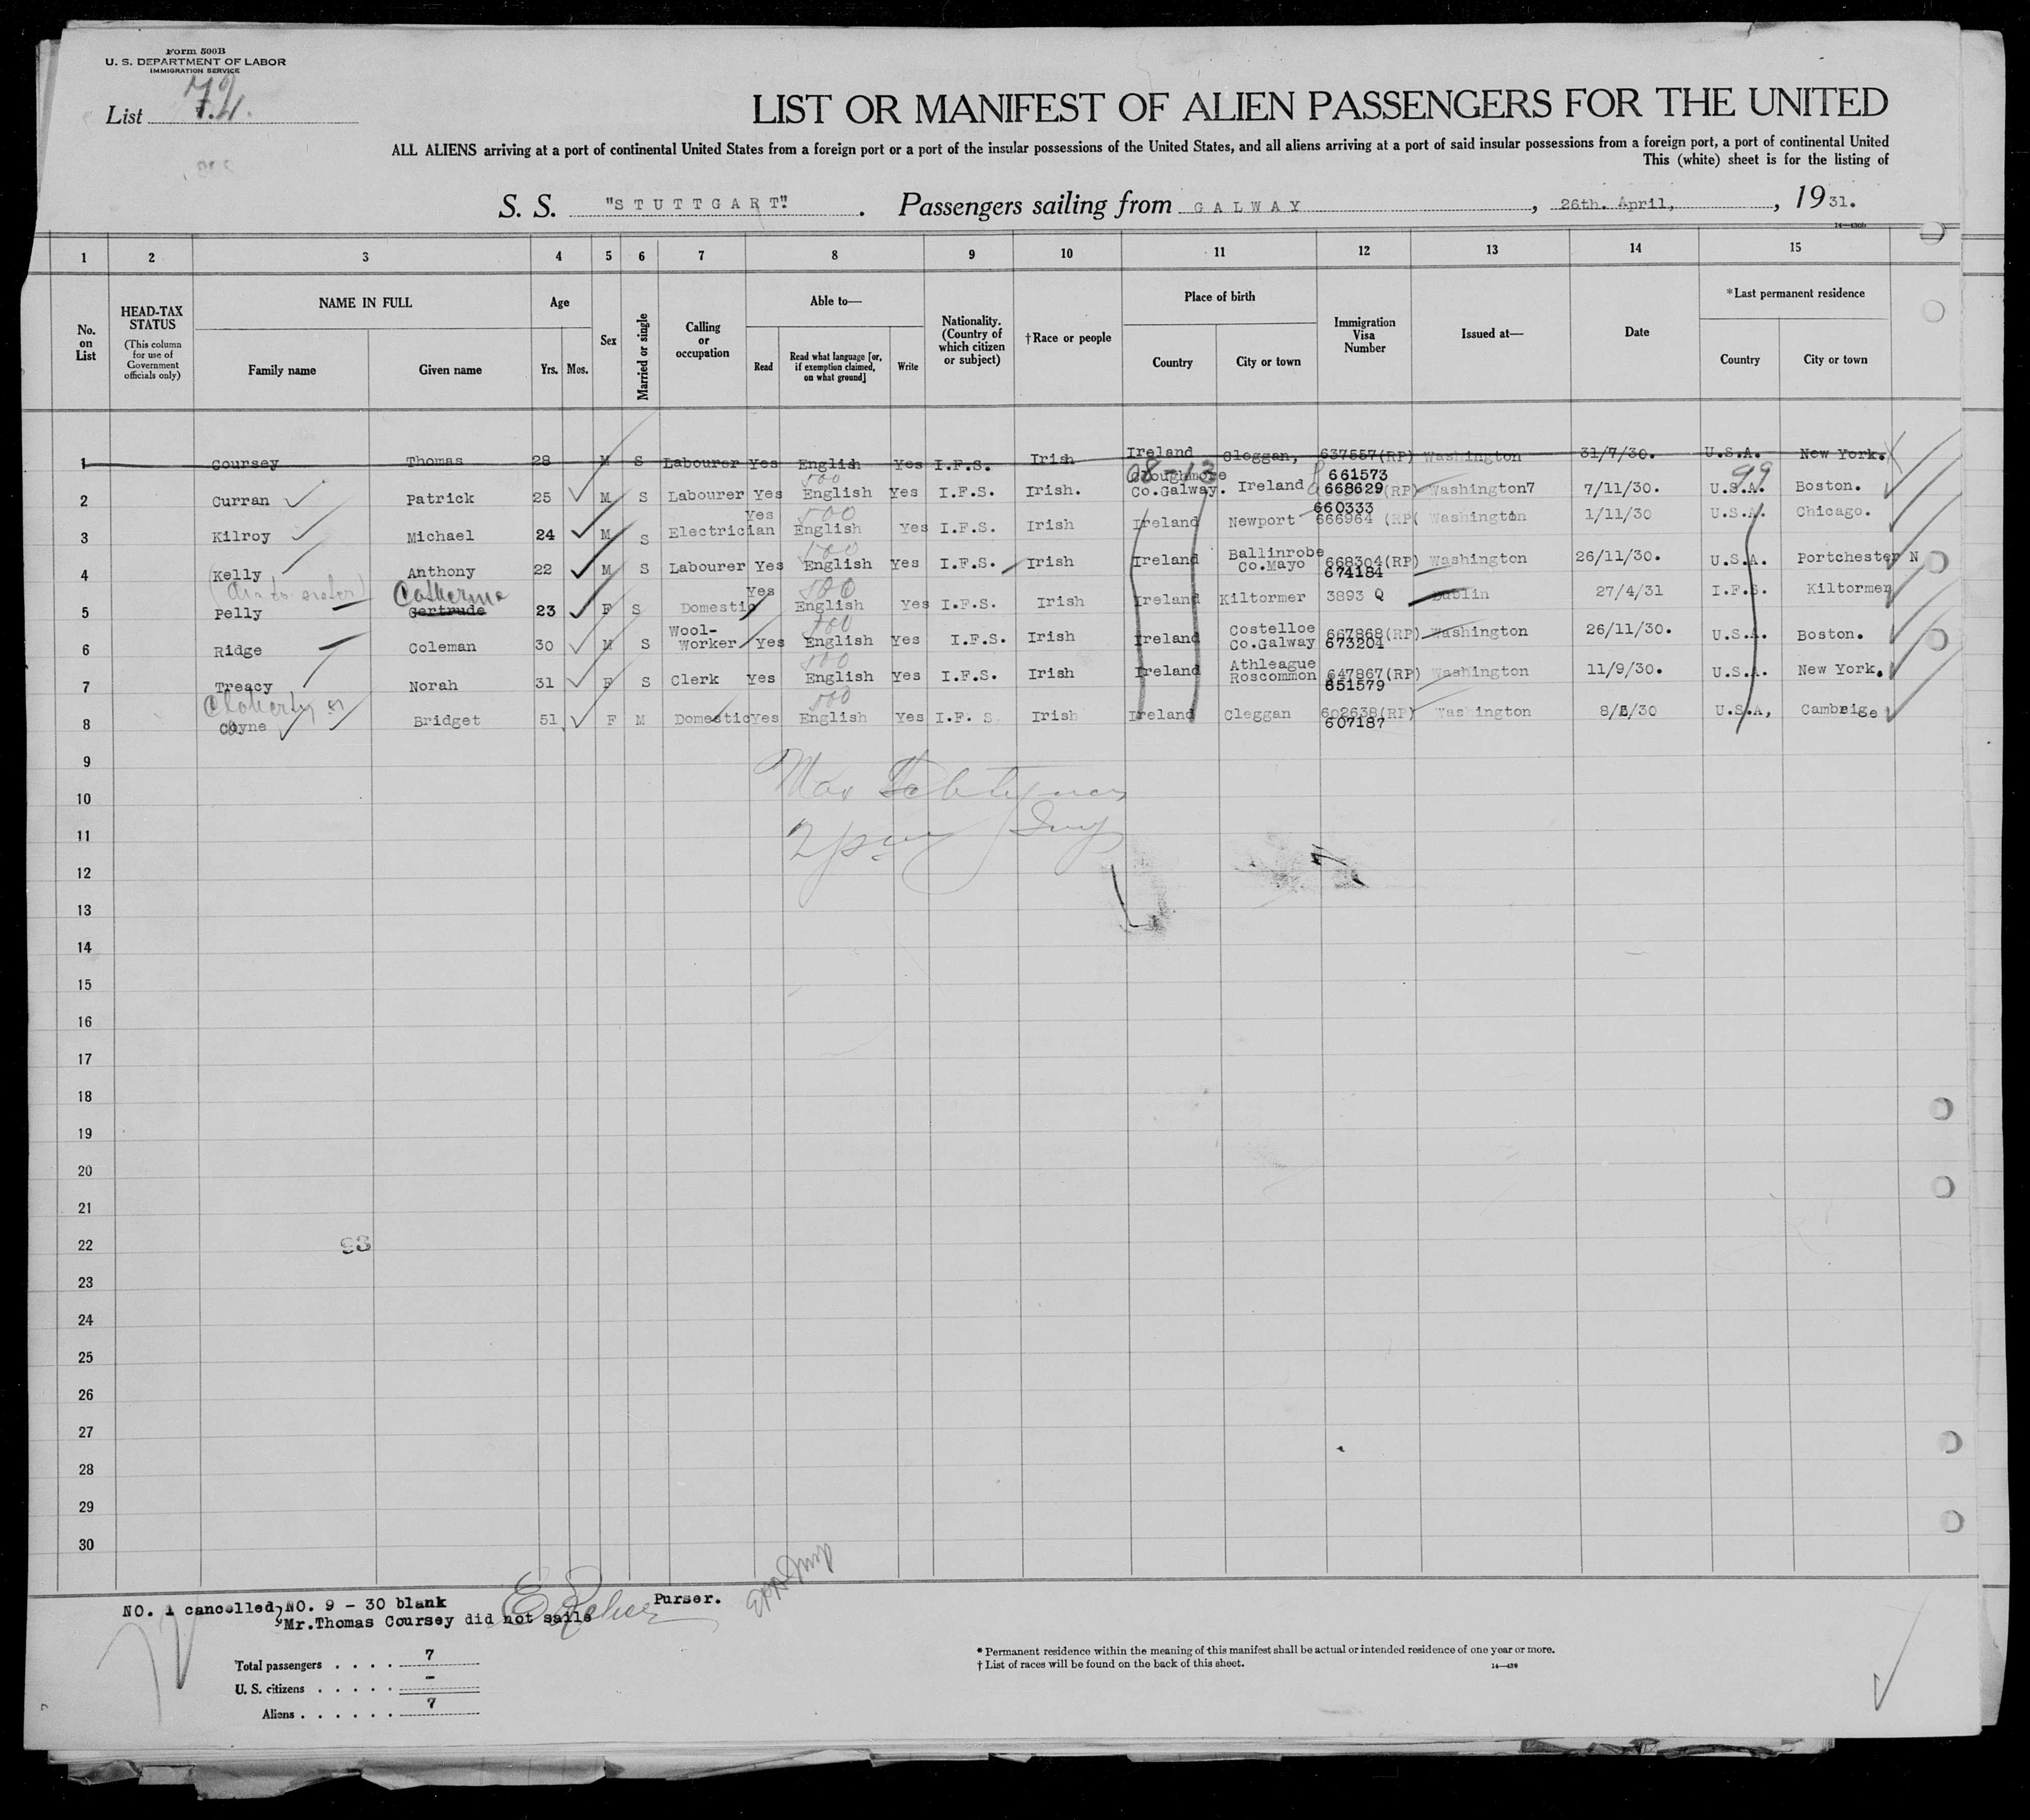 Form 500B
U. S. DEPARTMENT OF LABOR
IMMIGRATION SERVICE
List 72.
LIST OR MANIFEST OF ALIEN PASSENGERS FOR THE UNITED
ALL ALIENS arriving at a port of continental United States from a foreign port or a port of the insular possessions of the United States, and all aliens arriving at a port of said insular possessions from a foreign port, a port of continental United
This (white) sheet is for the listing of
S. S. "STUTTGART". Passengers sailing from GALWAY, 26th. April, , 1931.
1 2 3 4 5 6 7 8 9 10 11 12 13 14 15
No. on List
HEAD-TAX STATUS
(This column for use of Government officials only)
NAME IN FULL
Family name
Given name
Age
Yrs. Mos.
Sex
Married or single
Calling or occupation
Able to—
Read
Read what language [or, if exemption claimed, on what ground]
Write
Nationality. (Country of which citizen or subject)
†Race or people
Place of birth
Country
City or town
Immigration Visa Number
Issued at—
Date
*Last permanent residence
Country
City or town
1 Coursey Thomas 28 M S Labourer Yes English Yes I.F.S. Irish Ireland Cleggan, 637557(RP) Washington 31/7/30. U.S.A. New York.
08-13 661573 99
2 Curran Patrick 25 M S Labourer Yes 500 English Yes I.F.S. Irish. Co.Galway. Ireland 668629(RP) Washington7 7/11/30. U.S.A. Boston.
660333
3 Kilroy Michael 24 M S Electrician Yes 500 English Yes I.F.S. Irish Ireland Newport 666964 (RP( Washington 1/11/30 U.S.A. Chicago.
4 Kelly Anthony 22 M S Labourer Yes 500 English Yes I.F.S. Irish Ireland Ballinrobe Co.Mayo 668304(RP) 674184 Washington 26/11/30. U.S.A. Portchester N
Catherine
5 Pelly Gertrude 23 F S Domestic Yes 500 English Yes I.F.S. Irish Ireland Kiltormer 3893 Q Dublin 27/4/31 I.F.S. Kiltormer
6 Ridge Coleman 30 M S Wool-Worker Yes 500 English Yes I.F.S. Irish Ireland Costelloe Co.Galway 667868(RP) 673204 Washington 26/11/30. U.S.A. Boston.
7 Treacy Norah 31 F S Clerk Yes 500 English Yes I.F.S. Irish Ireland Athleague Roscommon 647867(RP) 651579 Washington 11/9/30. U.S.A. New York.
Cloherty or
8 Coyne Bridget 51 F M Domestic Yes 500 English Yes I.F. S. Irish Ireland Cleggan 602638(RP) 607187 Washington U.S.A, Cambrige
9
10
11
12
13
14
15
16
17
18
19
20
21
22
23
24
25
26
27
28
29
30
Purser.
NO. 1 cancelled, NO. 9 - 30 blank
Mr.Thomas Coursey did not saile
Total passengers . . . . 7
U. S. citizens . . . . . -
Aliens . . . . . . 7
* Permanent residence within the meaning of this manifest shall be actual or intended residence of one year or more.
† List of races will be found on the back of this sheet.
14—439